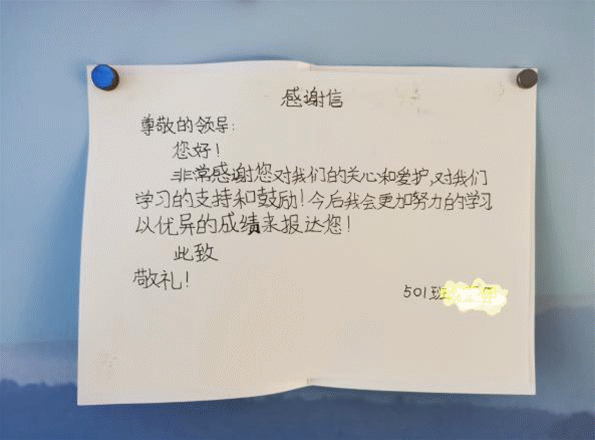 感谢信
尊敬的领导:
您好!
非常感谢您对我们的关心和爱护,对我们
学习的支持和鼓励!今后我会更加努力的学习
以优异的成绩来报达您!
此致
敬礼!
501班